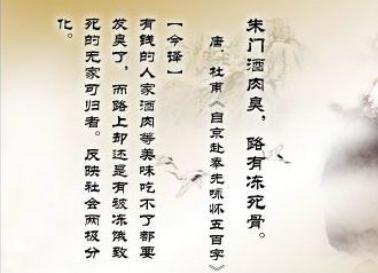 朱门酒肉臭，路有冻死骨。
唐．杜甫《自京赴奉先咏怀五百字》
【今译】
有钱的人家酒肉等美味吃不了都要
发臭了，而路上却还是有被冻饿致
死的无家可归者。反映社会两极分
化。